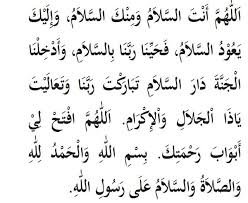 اَللّٰهُمَّ أَنْتَ السَّلَامُ وَمِنْكَ السَّلَامُ، وَإِلَيْكَ
يَعُوْدُ السَّلَامُ، فَحَيِّنَا رَبَّنَا بِالسَّلَامِ، وَأَدْخِلْنَا
الْجَنَّةَ دَارَ السَّلَامِ تَبَارَكْتَ رَبَّنَا وَتَعَالَيْتَ
يَاذَا الْجَلَالِ وَالْإِكْرَامِ. اَللّٰهُمَّ افْتَحْ لِيْ
أَبْوَابَ رَحْمَتِكَ. بِسْمِ اللهِ وَالْحَمْدُ لِلّٰهِ
وَالصَّلَاةُ وَالسَّلَامُ عَلَى رَسُوْلِ اللهِ.